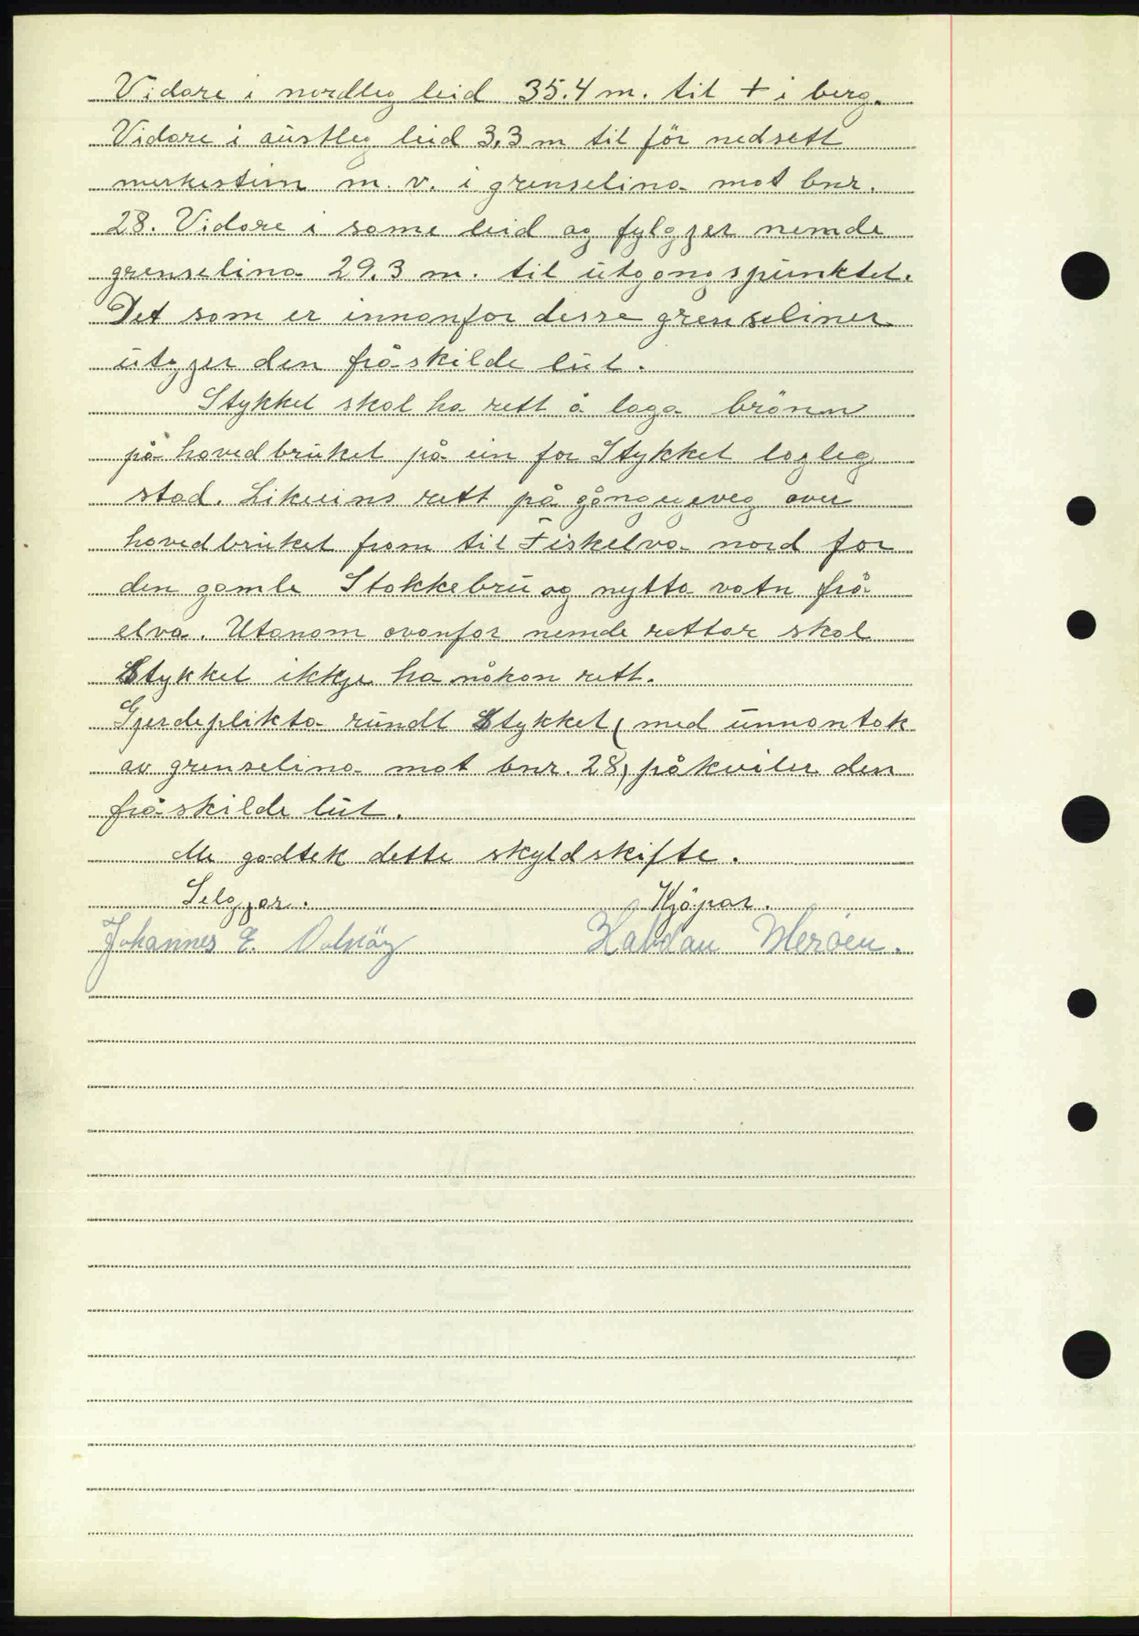 Vidare i nordleg leid 35.4 m. til + i berg.
Vidare i austleg leid 3,3 m til för nedsett
merkestein m. v. i grenselina mot bnr.
28. Vidare i same leid og fylgjer nemde
grenselina 29.3 m. til utgongspunktet.
Det som er innanfor desse grenseliner
utgjer den fråskilde lut.
Stykket skal ha rett å laga brönn
på hovedbruket på ein for Stykket lagleg
stad. Likeeins rett på gångegeveg over
hovedbruket fram til Fiskelva nord for
den gamle Stokkebru og nytta vatn frå
elva. Utanom ovanfor nemde rettar skal
Stykket ikkje ha nokon rett.
Gjerdeplikta rundt Stykket (med unnantak
av grenselina mot bnr. 28) påkviler den
fråskilde lut.
Me godtek dette skyldskifte.
Seljgar. Kjöpar.
Johannes E. Halvdan Meröen.